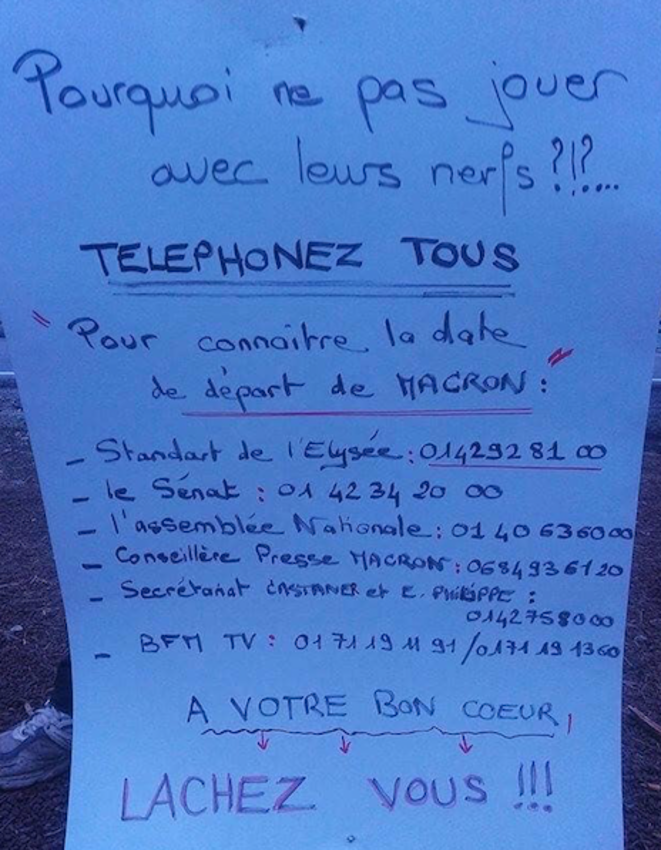 Pourquoi ne pas jouer
avec leurs nerfs ?!?....
TELEPHONEZ TOUS
" Pour connaitre la date
de départ de MACRON : "
- Standart de l'Elysée : 01 42 92 81 00
- le Sénat : 01 42 34 20 00
- l'assemblée Nationale : 01 40 63 60 00
- Conseillère Presse MACRON : 0684936120
- Secrétariat CASTANER et E. PHILIPPE :
0142758000
- BFM TV : 01 71 19 11 91 / 01 71 19 13 60
A VOTRE BON COEUR !
LACHEZ VOUS !!!